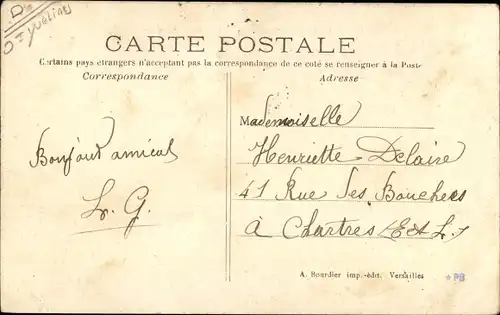 D
Yvelines
CARTE POSTALE
Certains pays étrangers n'acceptant pas la correspondance de ce coté se renseigner à la Poste
Correspondance
Adresse
Mademoiselle
Henriette Delaire
41 Rue des Bouchers
à Chartres (E et L.)
amical
L. G.
A. Bourdier imp.-édit. Versailles
*PB